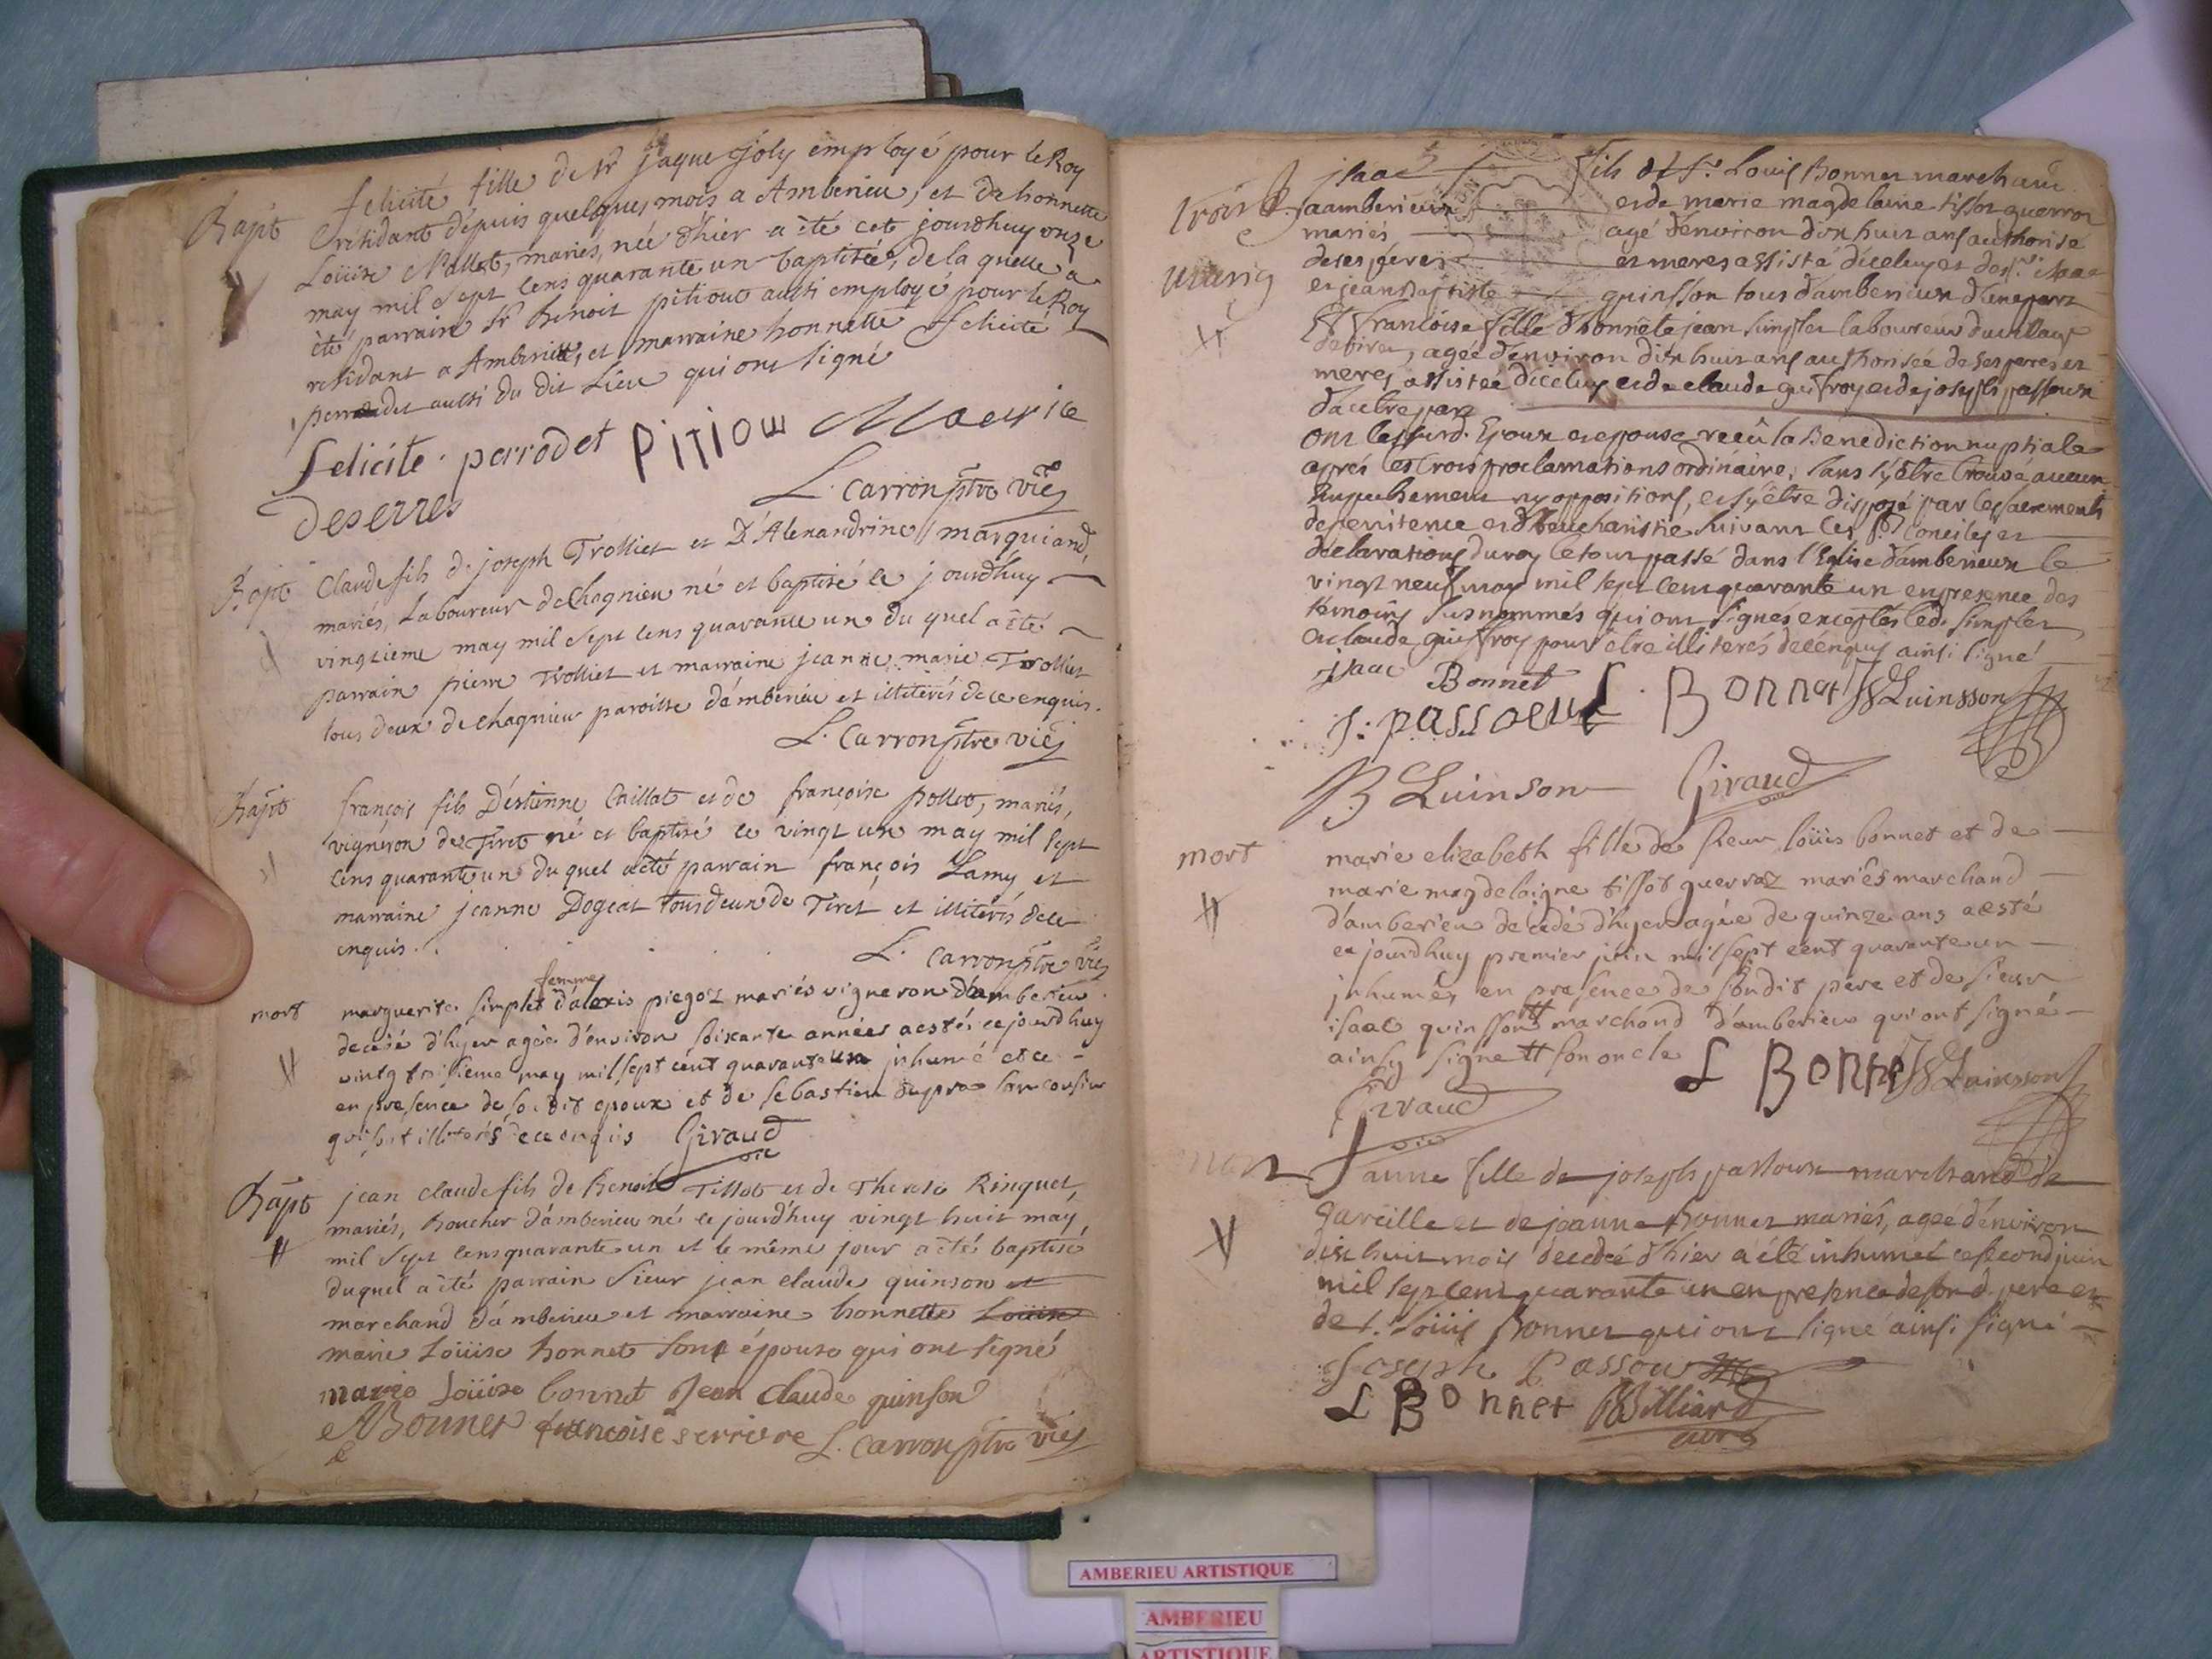 Bapt
felicité fille de Sr jaque joly employé pour le Roy
résidant dépuis quelques mois a Amberieu, et de honnette
Loüise Nallet, mariés, née d'hier a èté cete jourdhuy onze
may mil sept cens quarante un baptisée, de la quelle a
èté parrain Sr Benoit pitiout aussi employé pour le Roy
résidant a Amberieu, et marraine honnette felicité
perrodet aussi du dit Lieu qui ont signé
felicité perrodet PiTiou Maurie
Deserres L. Carron ptre vic
Bapt
Claude fils de joseph Trolliet et D'Alexandrine marquiand,
mariés, Laboureur de Chagnieu né et baptisé ce jourdhuy
vingtieme may mil sept cens quarante un du quel a èté
parrain pierre Trolliet et marraine jeanne marie Trolliet
tous deux de chagnieu paroisse d'amberieu et illiterés de ce enquis.
L. Carron ptre vic
Bapt
françois fils D'estienne Caillat et de françoise pollet, mariés,
vigneron de Tiret né et baptisé ce vingt un may mil sept
cens quarante un du quel a èté parrain françois Lamy et
marraine jeanne Dogeat tous deux de Tiret et illiterés de ce
enquis.
L. Carron ptre vic
mort
femme
marguerite simplet d'alexis piegoz mariés vigneron d'amberieu
decedé d'hyer agée d'environ soixante années a esté ce jourdhuy
vintg troisieme may mil sept cent quarante un inhumé et ce
en presence de son dit epoux et de sebastien dupra son cousin
qui sont illiterés de ce enquis Giraud
vic
Bapt
jean claude fils de Benoit Tissot et de Therese Ringuet,
mariés, Boucher d'amberieu né ce jourd'huy vingt huit may
mil sept cens quarante un et le même jour a été baptisé
duquel a èté parrain Sieur jean claude quinson et
marchand d'amberieu et marraine honnette Loüise
marie Loüise bonnet son épouse qui ont signé
marie loüise bonnet Jean Claude quinson
ABonnet françoise serriere L. Carron ptre vic
isaac fils de Sr. Louis Bonnet marchand
a amberieux et de marie magdelaine tissot guerraz
mariés agé d'environ dix huit ans authorisé
de ses péres et meres assisté d'iceluy et des Srs isaac
et jean Baptiste quinsson tous d'amberieux d'une part
Et francoise fille d'honnête jean simplet laboureur
de tiret, agée d'environ dix huit ans authorisée de ses peres et
meres assistée d'iceluy et de claude geuffroy et de joseph passoux
d'autre part
ont lessusd. Epoux et epouse receû la Benediction nuptiale
aprés les trois proclamations ordinaire, sans s'y être trouvé aucun
Empechement ny oppositions, et s'y être disposé par les sacrements
de penitence et d'Eeucharistie suivant les Sts conciles et
declarations du roy le tout passé dans l'Eglise d'amberieux le
vingt neuf may mil sept cent quarante un en presence des
témoins susnommés qui ont signés exceptés led. simplet
et claude geuffroy pour être illiterés de cé enquis ainsi signé
isaac Bonnet L. Bonnet JB Quinsson
J: passoeu
B Quinson Giraud
mort
marie elizabeth fille de sieur loüis bonnet et de
marie magdelaigne tissot guerraz mariés marchand
d'amberieu decedé d'hyer agée de quinze ans a esté
ce jourdhuy premier juin mil sept cent quarante un
inhumée en presence de sondit pére et de sieur
isaac quinsson marchand d'amberieu qui ont signé
ainsy signe son oncle L Bonnet JB Quinsson
Giraud
vic
mort
Janne fille de joseph passoux marchand de
Gareille et de jeanne Bonnet mariés, agée d'environ
dix huit mois decedée d'hier a été inhumée ce second juin
mil sept cent quarante un en presence de sond. pere et
de S. loüis Bonnet qui ont signé ainsi signé
Joseph Passou
L Bonnet Billiard
curé
AMBERIEU ARTISTIQUE
AMBERIEU
ARTISTIQUE